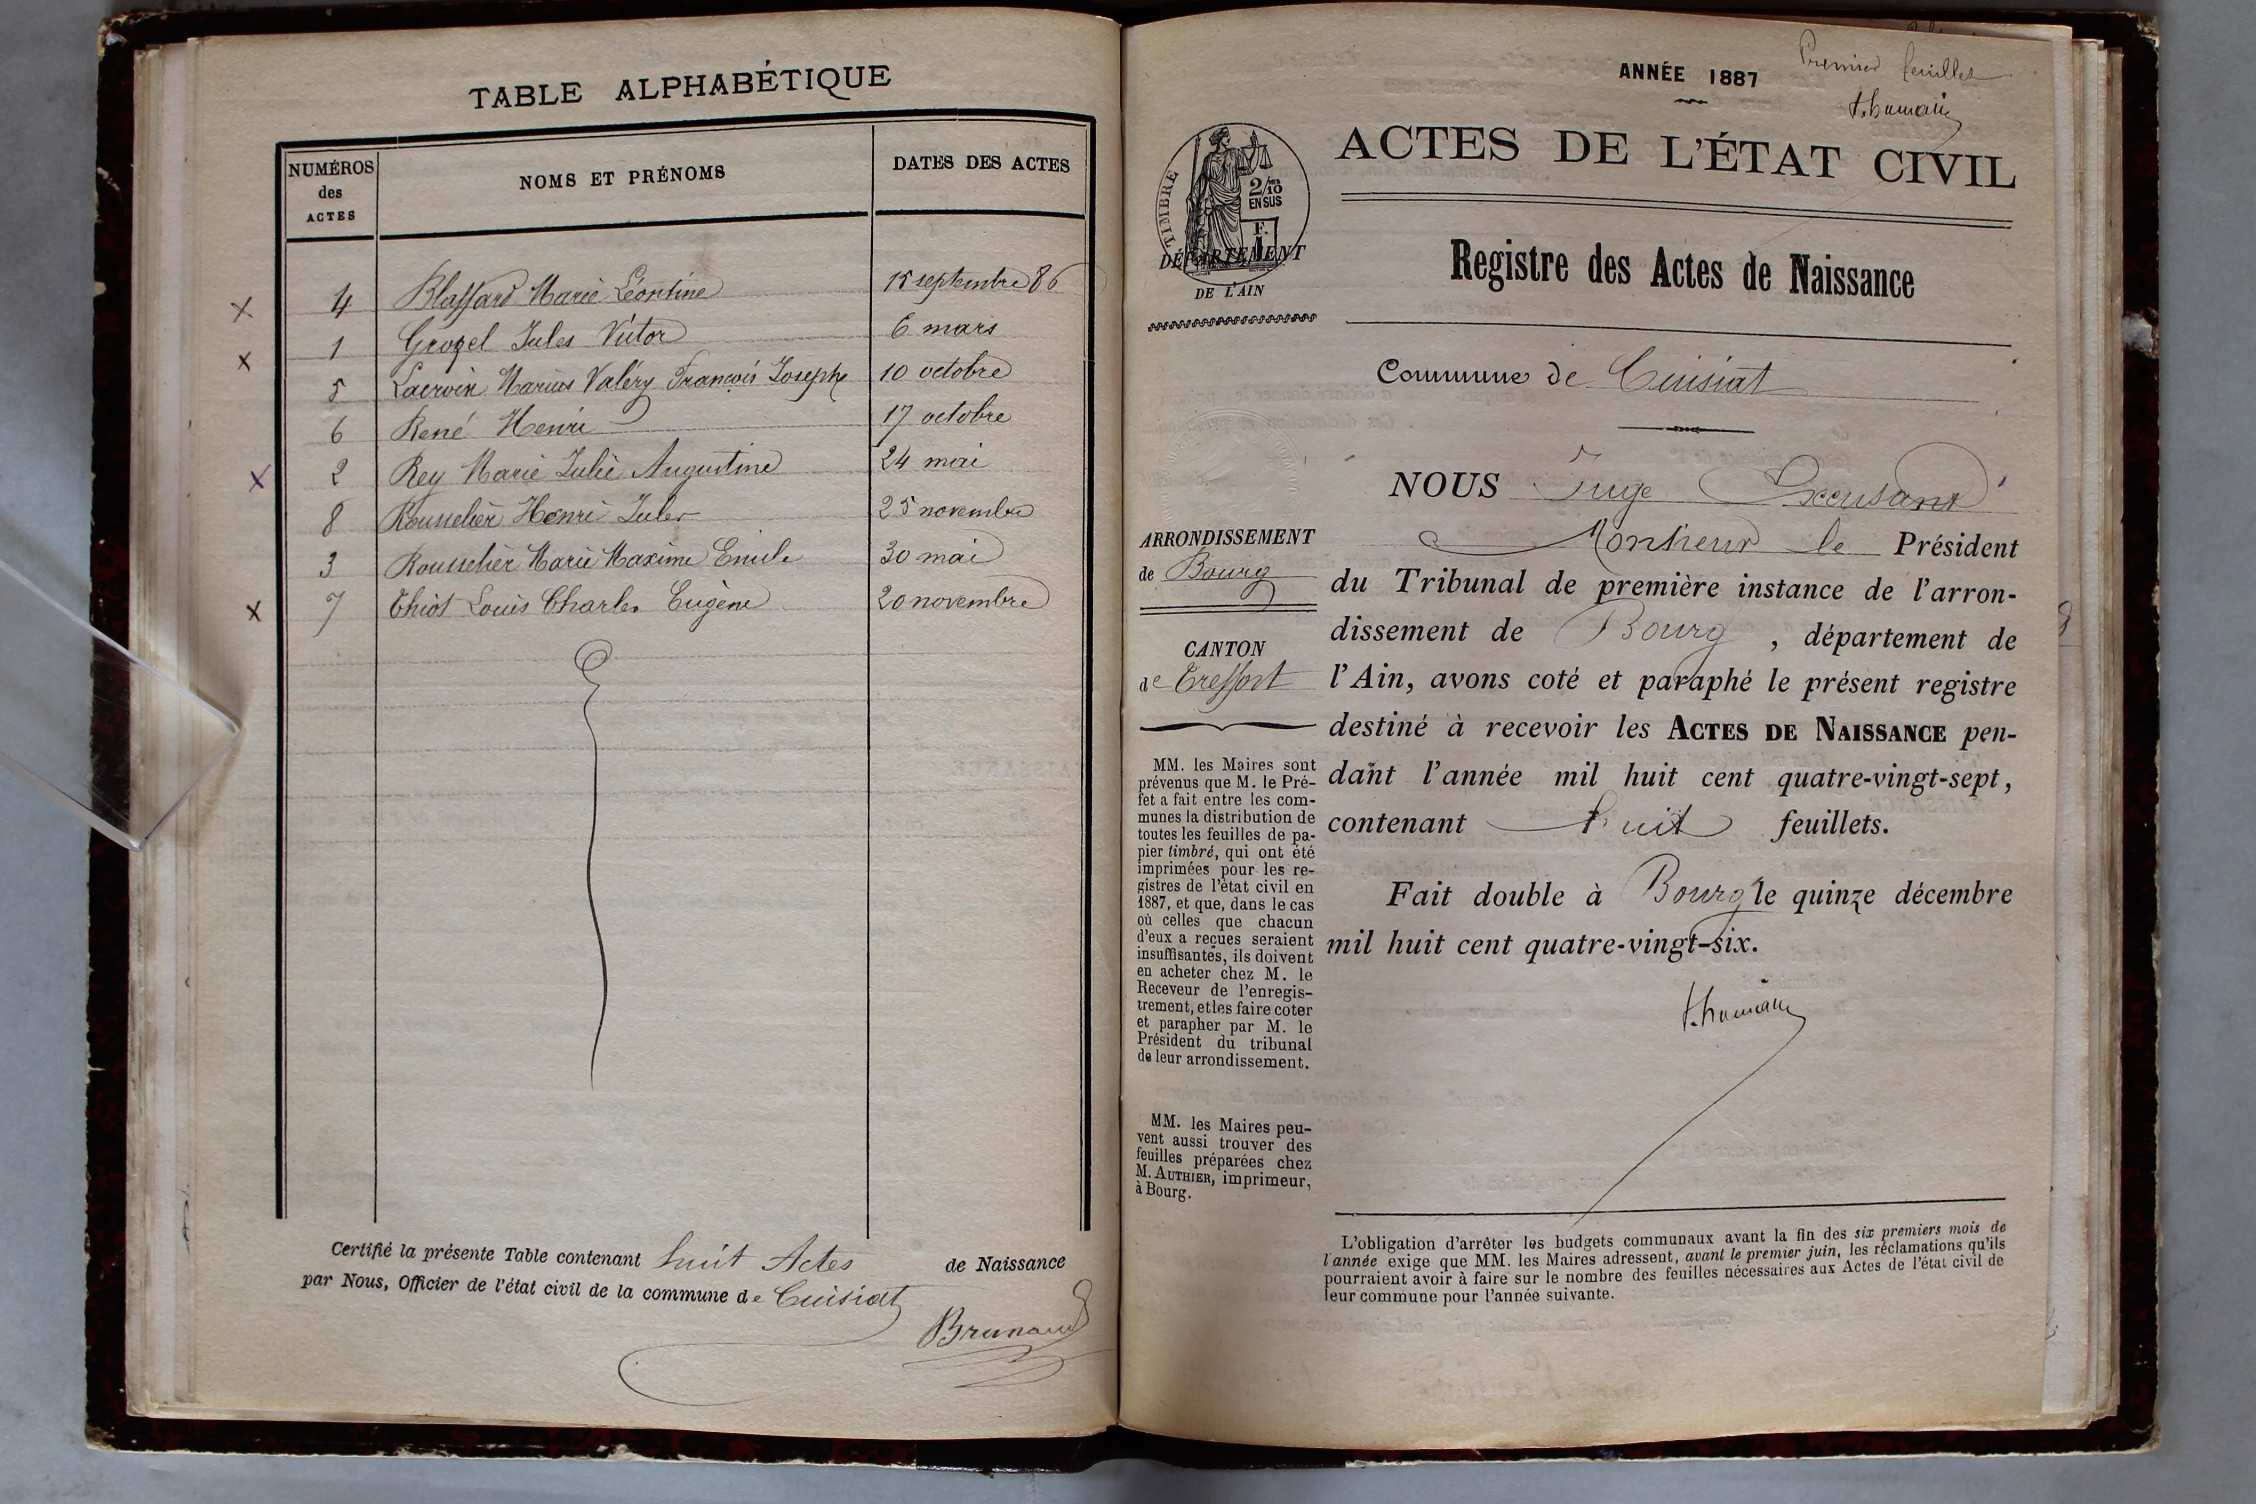 TABLE ALPHABÉTIQUE
NUMÉROS des ACTES
NOMS ET PRÉNOMS
DATES DES ACTES
4 Blaffard Marie Léontine 15 septembre 86
1 Grozel Jules Victor 6 mars
5 Lacroix Marius Valéry François Joseph 10 octobre
6 René Henri 17 octobre
2 Rey Marie Julie Augustine 24 mai
8 Rousselier Henri Jules 25 novembre
3 Rousselier Marie Maxime Emile 30 mai
7 Thiot Louis Charles Eugène 20 novembre
Certifié la présente Table contenant huit Actes de Naissance
par Nous, Officier de l'état civil de la commune de Cuisiat
Brunaud
Premier feuillet
ANNÉE 1887
ACTES DE L'ÉTAT CIVIL
TIMBRE
2/10 EN SUS
F.
DÉPARTEMENT
DE L'AIN
Registre des Actes de Naissance
Commune de Cuisiat
ARRONDISSEMENT
de Bourg
CANTON
de Treffort
MM. les Maires sont
prévenus que M. le Pré-
fet a fait entre les com-
munes la distribution de
toutes les feuilles de pa-
pier timbré, qui ont été
imprimées pour les re-
gistres de l'état civil en
1887, et que, dans le cas
où celles que chacun
d'eux a reçues seraient
insuffisantes, ils doivent
en acheter chez M. le
Receveur de l'enregis-
trement, et les faire coter
et parapher par M. le
Président du tribunal
de leur arrondissement.
MM. les Maires peu-
vent aussi trouver des
feuilles préparées chez
M. AUTHIER, imprimeur,
à Bourg.
NOUS Juge
Monsieur le Président
du Tribunal de première instance de l'arron-
dissement de Bourg, département de
l'Ain, avons coté et paraphé le présent registre
destiné à recevoir les ACTES DE NAISSANCE pen-
dant l'année mil huit cent quatre-vingt-sept,
contenant huit feuillets.
Fait double à Bourg le quinze décembre
mil huit cent quatre-vingt-six.
L'obligation d'arrêter les budgets communaux avant la fin des six premiers mois de
l'année exige que MM. les Maires adressent, avant le premier juin, les réclamations qu'ils
pourraient avoir à faire sur le nombre des feuilles nécessaires aux Actes de l'état civil de
leur commune pour l'année suivante.